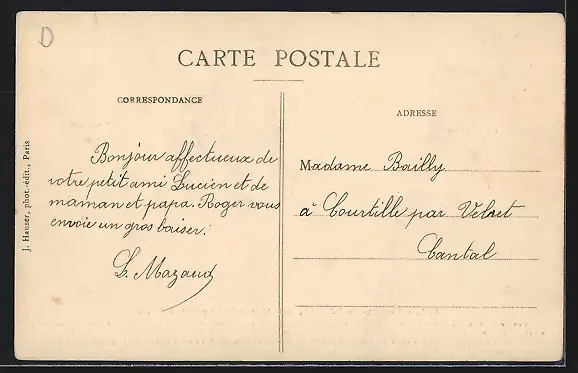 D
CARTE POSTALE
CORRESPONDANCE
Bonjour affectueux de
votre petit ami Lucien et de
maman et papa. Roger vous
envoie un gros baiser.
L. Mazaud
ADRESSE
Madame Bailly
à Courtille par Velzet
Cantal
J. Hauser, phot.-édit., Paris